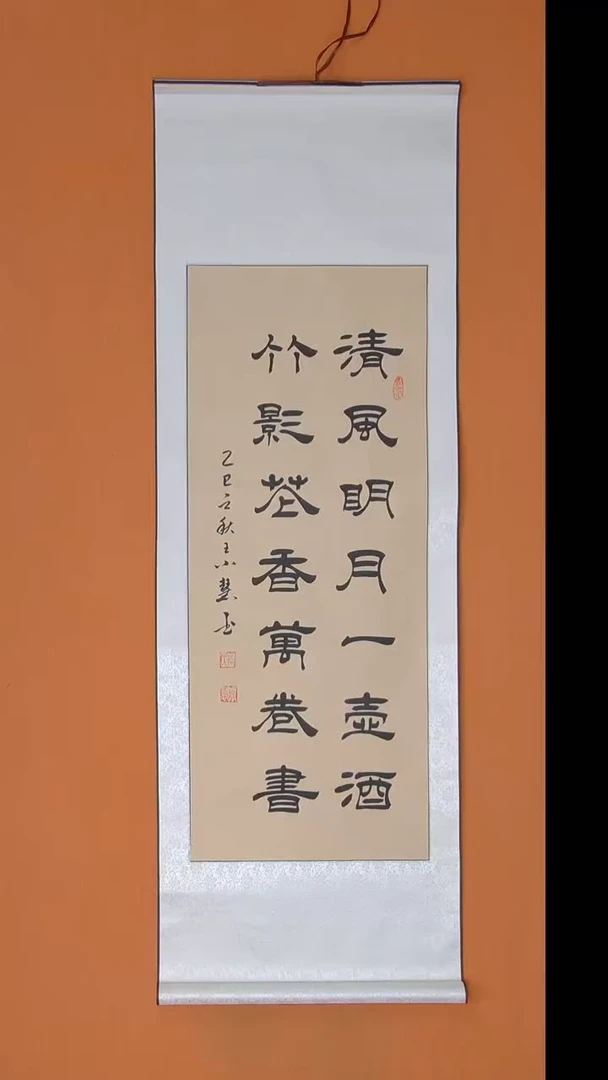 清風明月一壺酒
竹影花香萬卷書
乙巳之秋王小慧書